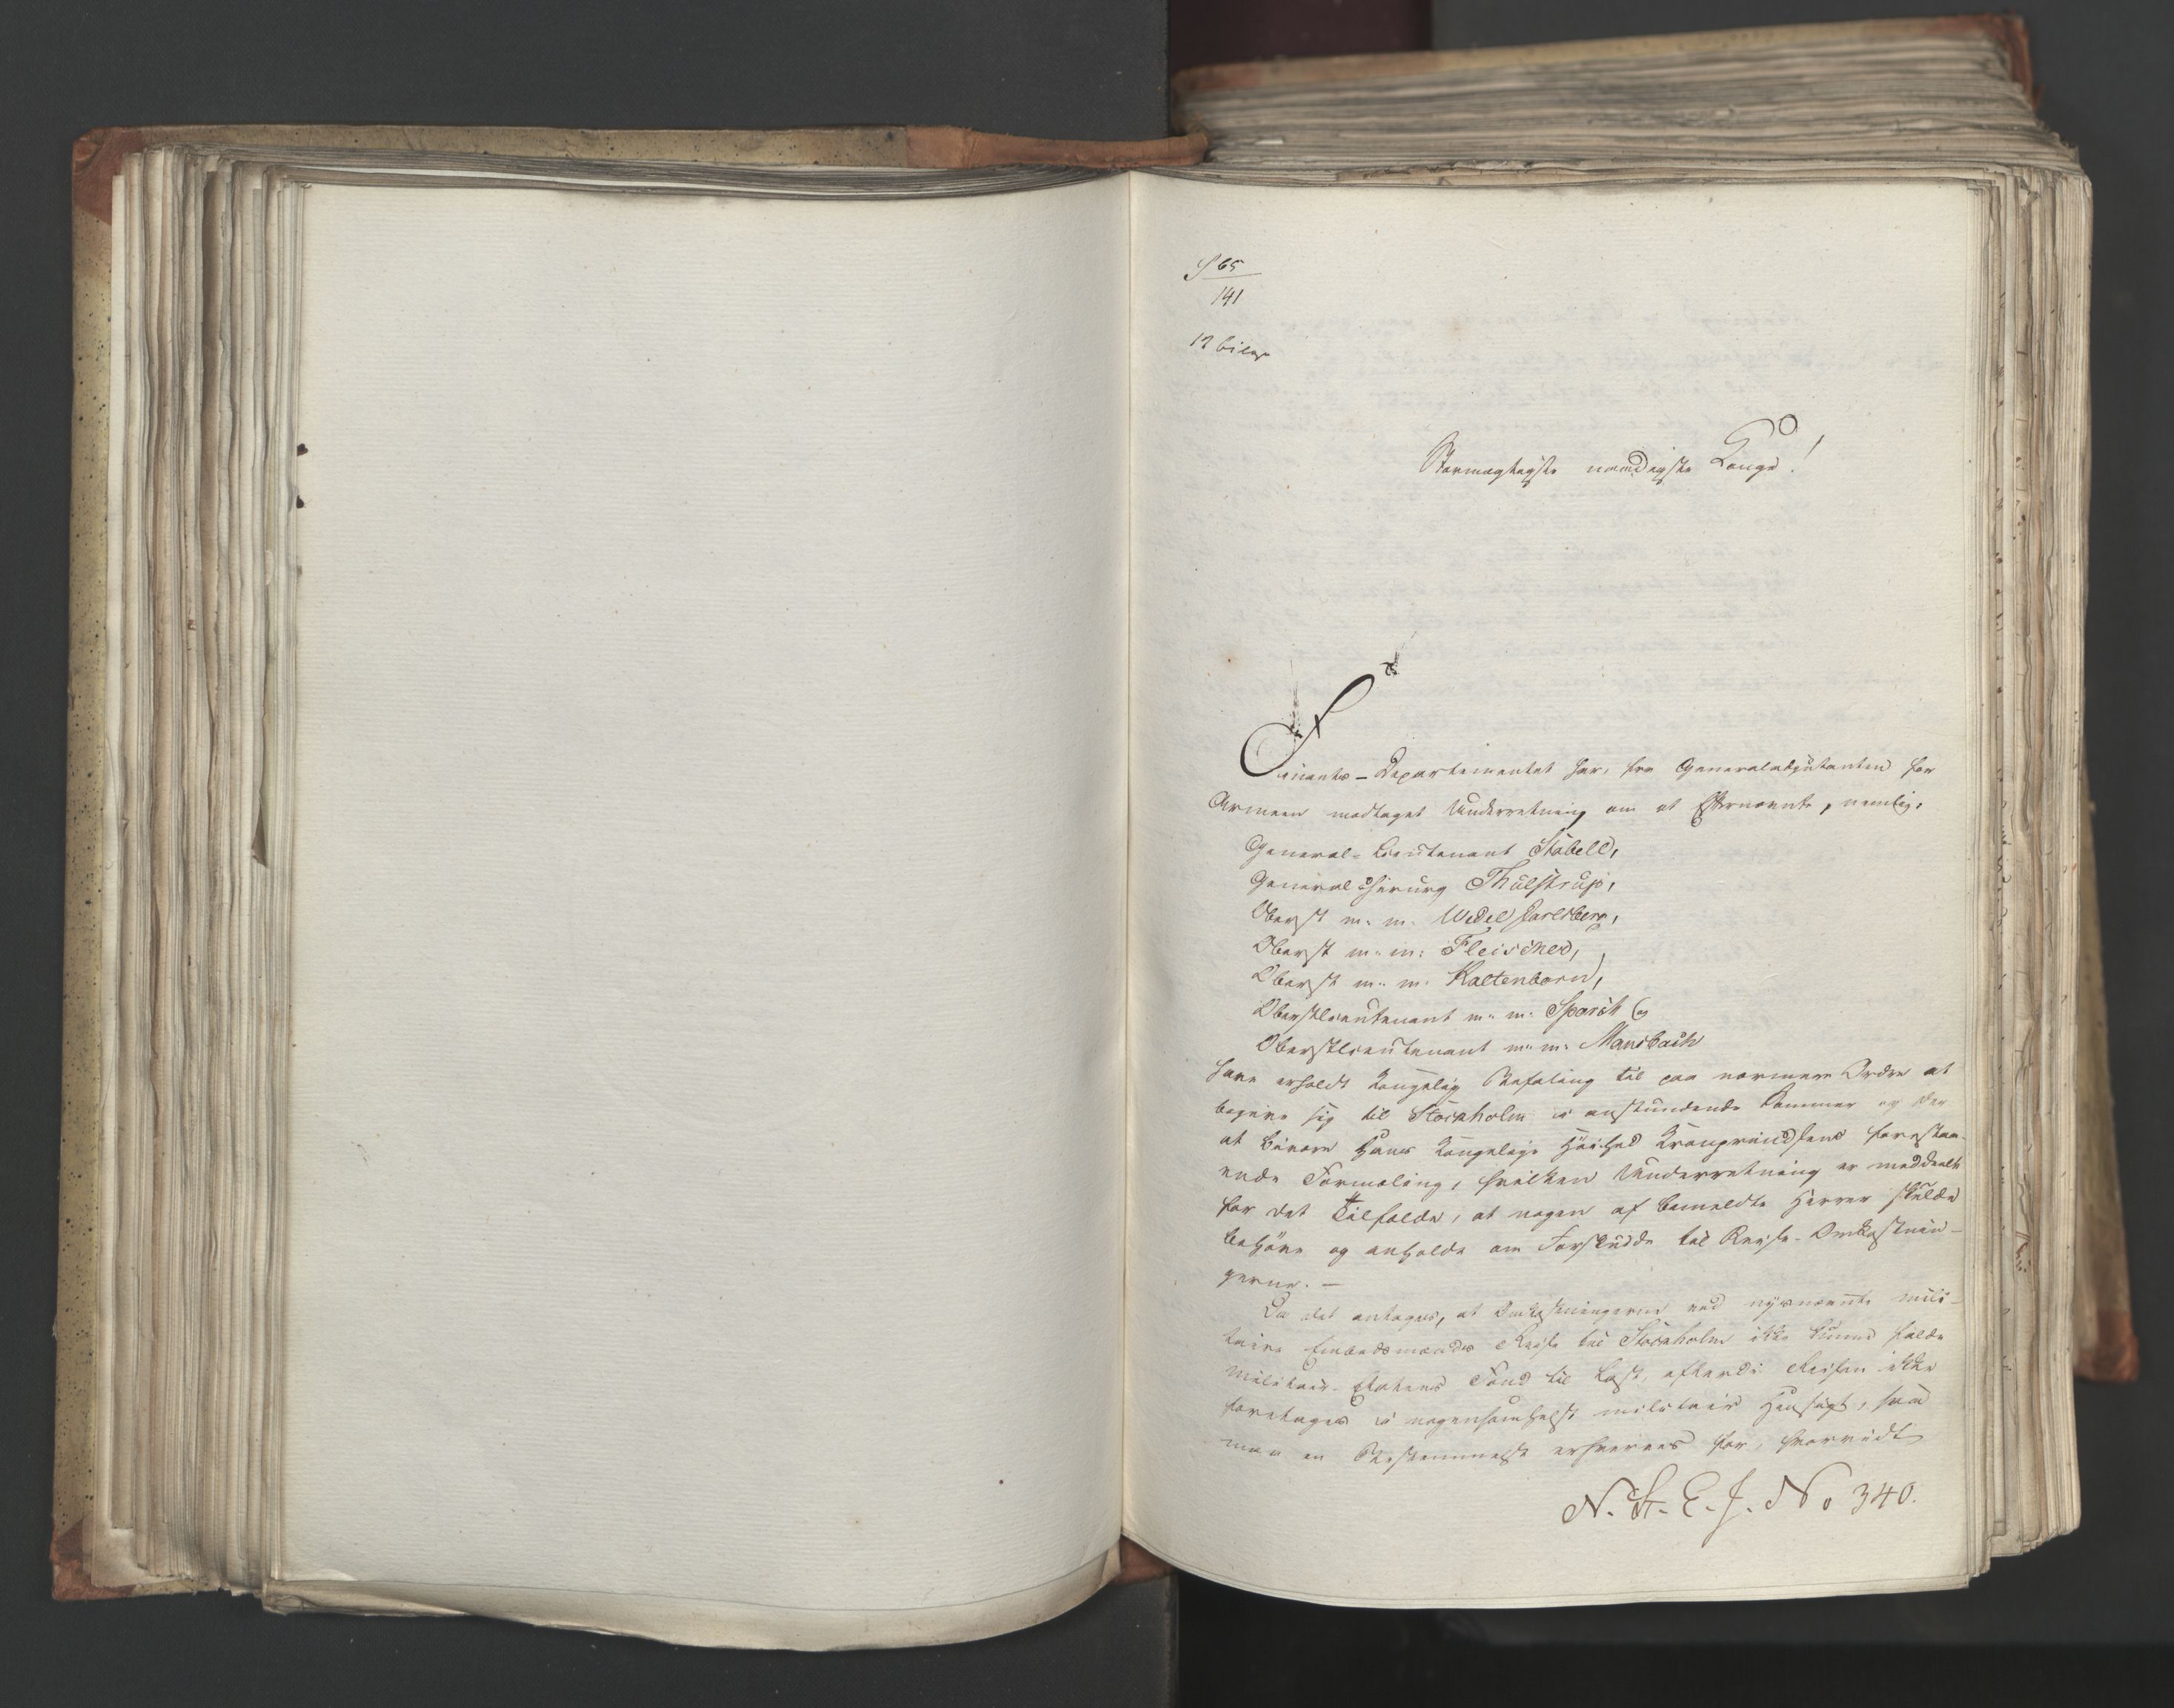 S 65
141
12 bilag
Stormægtigste naadigste Konge!
Finants-Departementet har, fra Generaladjutanten for
Armeen modtaget Underretning om at Efternævnte, nemlig:
General-Lieutenant Stabell,
General Chirurg Thulstrup,
Oberst m. m. Wedel Jarlsberg,
Oberst m. m. Fleischer,
Oberst m. m. Kaltenborn,
Oberstlieutenant m. m. Sparch og
Oberstlieutenant m. m. Mansbach
have erholdt Kongelig Befaling til paa nærmere Ordre at
begive sig til Stockholm i anstundende Sommer og der
at bivaane Hans Kongelige Høihed Kronprindsens forestaa-
ende Formæling, hvilken Underretning er meddeelt
for det Tilfælde, at nogen af bemeldte Herrer skulde
behøve og anholde om Forskudde til Reise-Omkostnin-
gerne. —
Da det antages, at Omkostningerne ved nysnævnte mili-
taire Embedsmænds Reise til Stockholm ikke kunne falde
Militair-Etatens Fond til Last, efterdi Reisen ikke
foretages i nogensomhelst militair Hensigt, saa
maa en Bestemmelse erhverves for, hvorvidt
N. St. E. J. No 340.